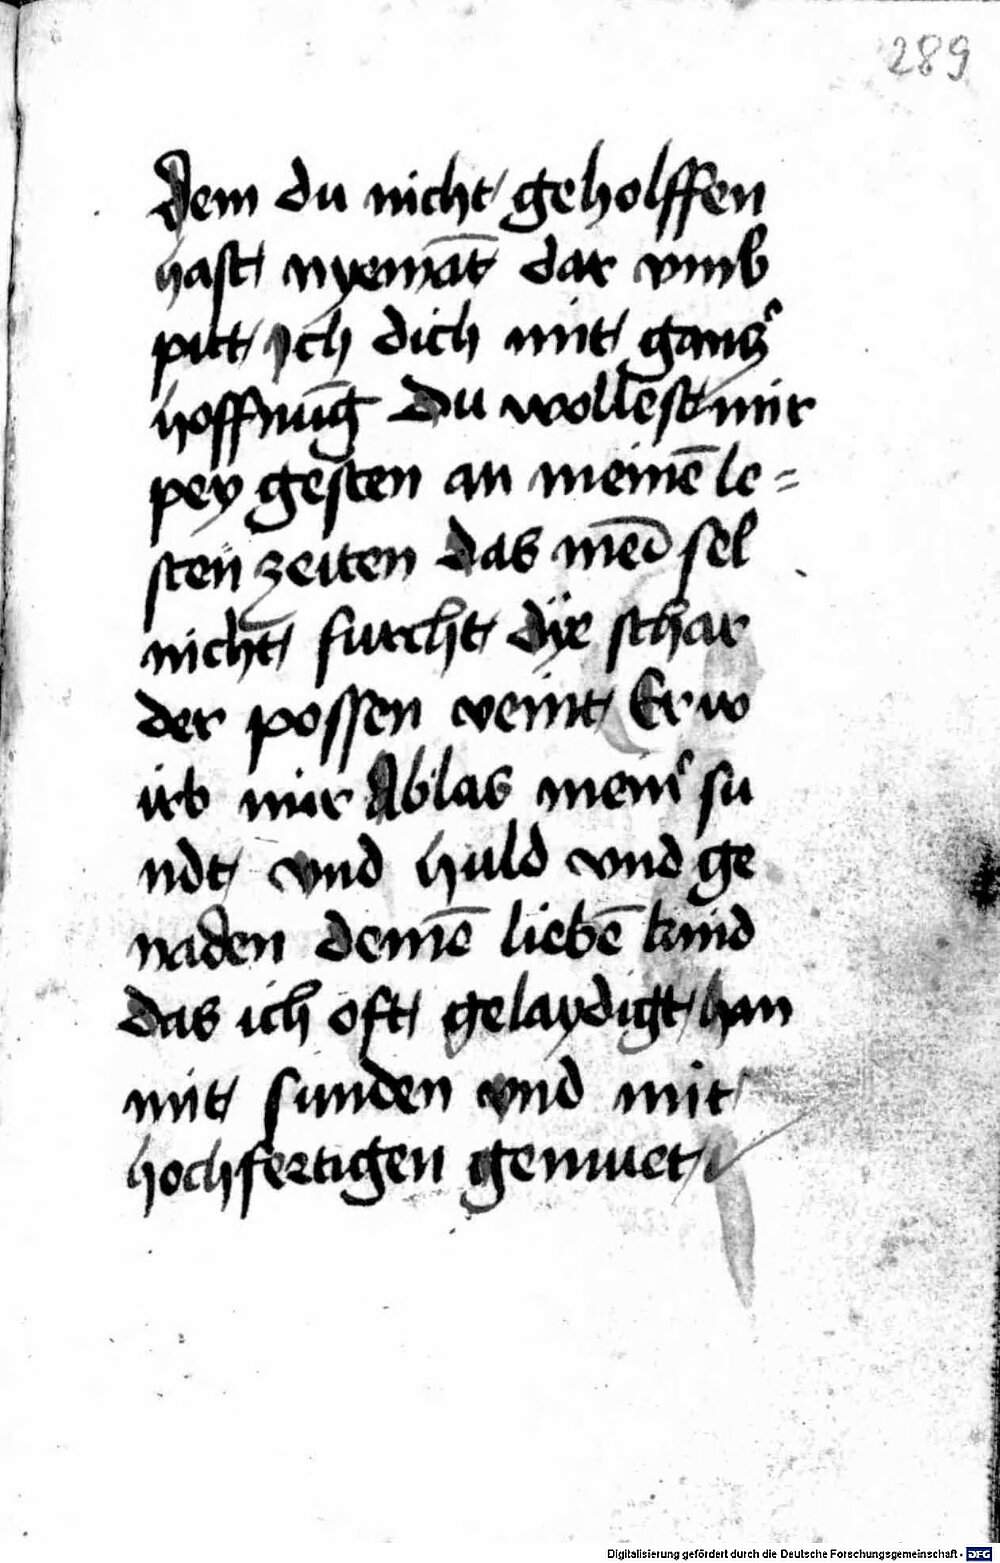 289
dem du nicht geholffen
hast nyemāt dar vmb
pitt ich dich mit gancz
hoffnūg Du wollest mir
pey gesten an meinē le=
sten zeiten das mei sel
nicht furcht dÿe schar
der possen veint Erw
irb mir Ablas meinr su
ndt vnd huld vnd ge
naden deinē liebē kind
das ich oft gelaydigt han
mit sunden vnd mit
hochfertigen gemuet
Digitalisierung gefördert durch die Deutsche Forschungsgemeinschaft - DFG